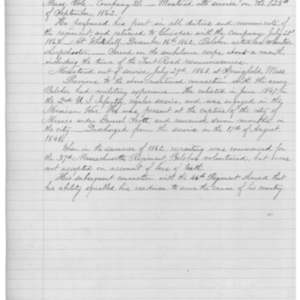 Mass. Vols. Company D. - Mustered into service on the 23rd
of September 1862.
He performed his part in all duties and movements of
the regiment, and returned to Chicopee with the company July 21st
1863. At Whitehall, December 16th 1862, Belcher acted as volunteer
sharpshooter. Served in the ambulance corps about a month,
including the time of the Trent Road reconnoissance.
Mustered out of service, July 29th 1863, at Springfield, Mass.
Previous to the war Belcher had military experience. He enlisted in June 1847 in
the 2nd U.S. Infantry regular service, and was engaged in the
Mexican War. He was present at the capture of the city of
Mexico under General Scott, and remained seven months in
the city. Discharged from the service in the 1st of August
1848.
When in the summer of 1862, recruiting was commenced for
the 37th Massachusetts Regiment, Belcher volunteered, but was
not accepted on account of loss of teeth.
His subsequent connection with the 46th Regiment showed that
his ability equalled his readiness to serve the cause of his country.